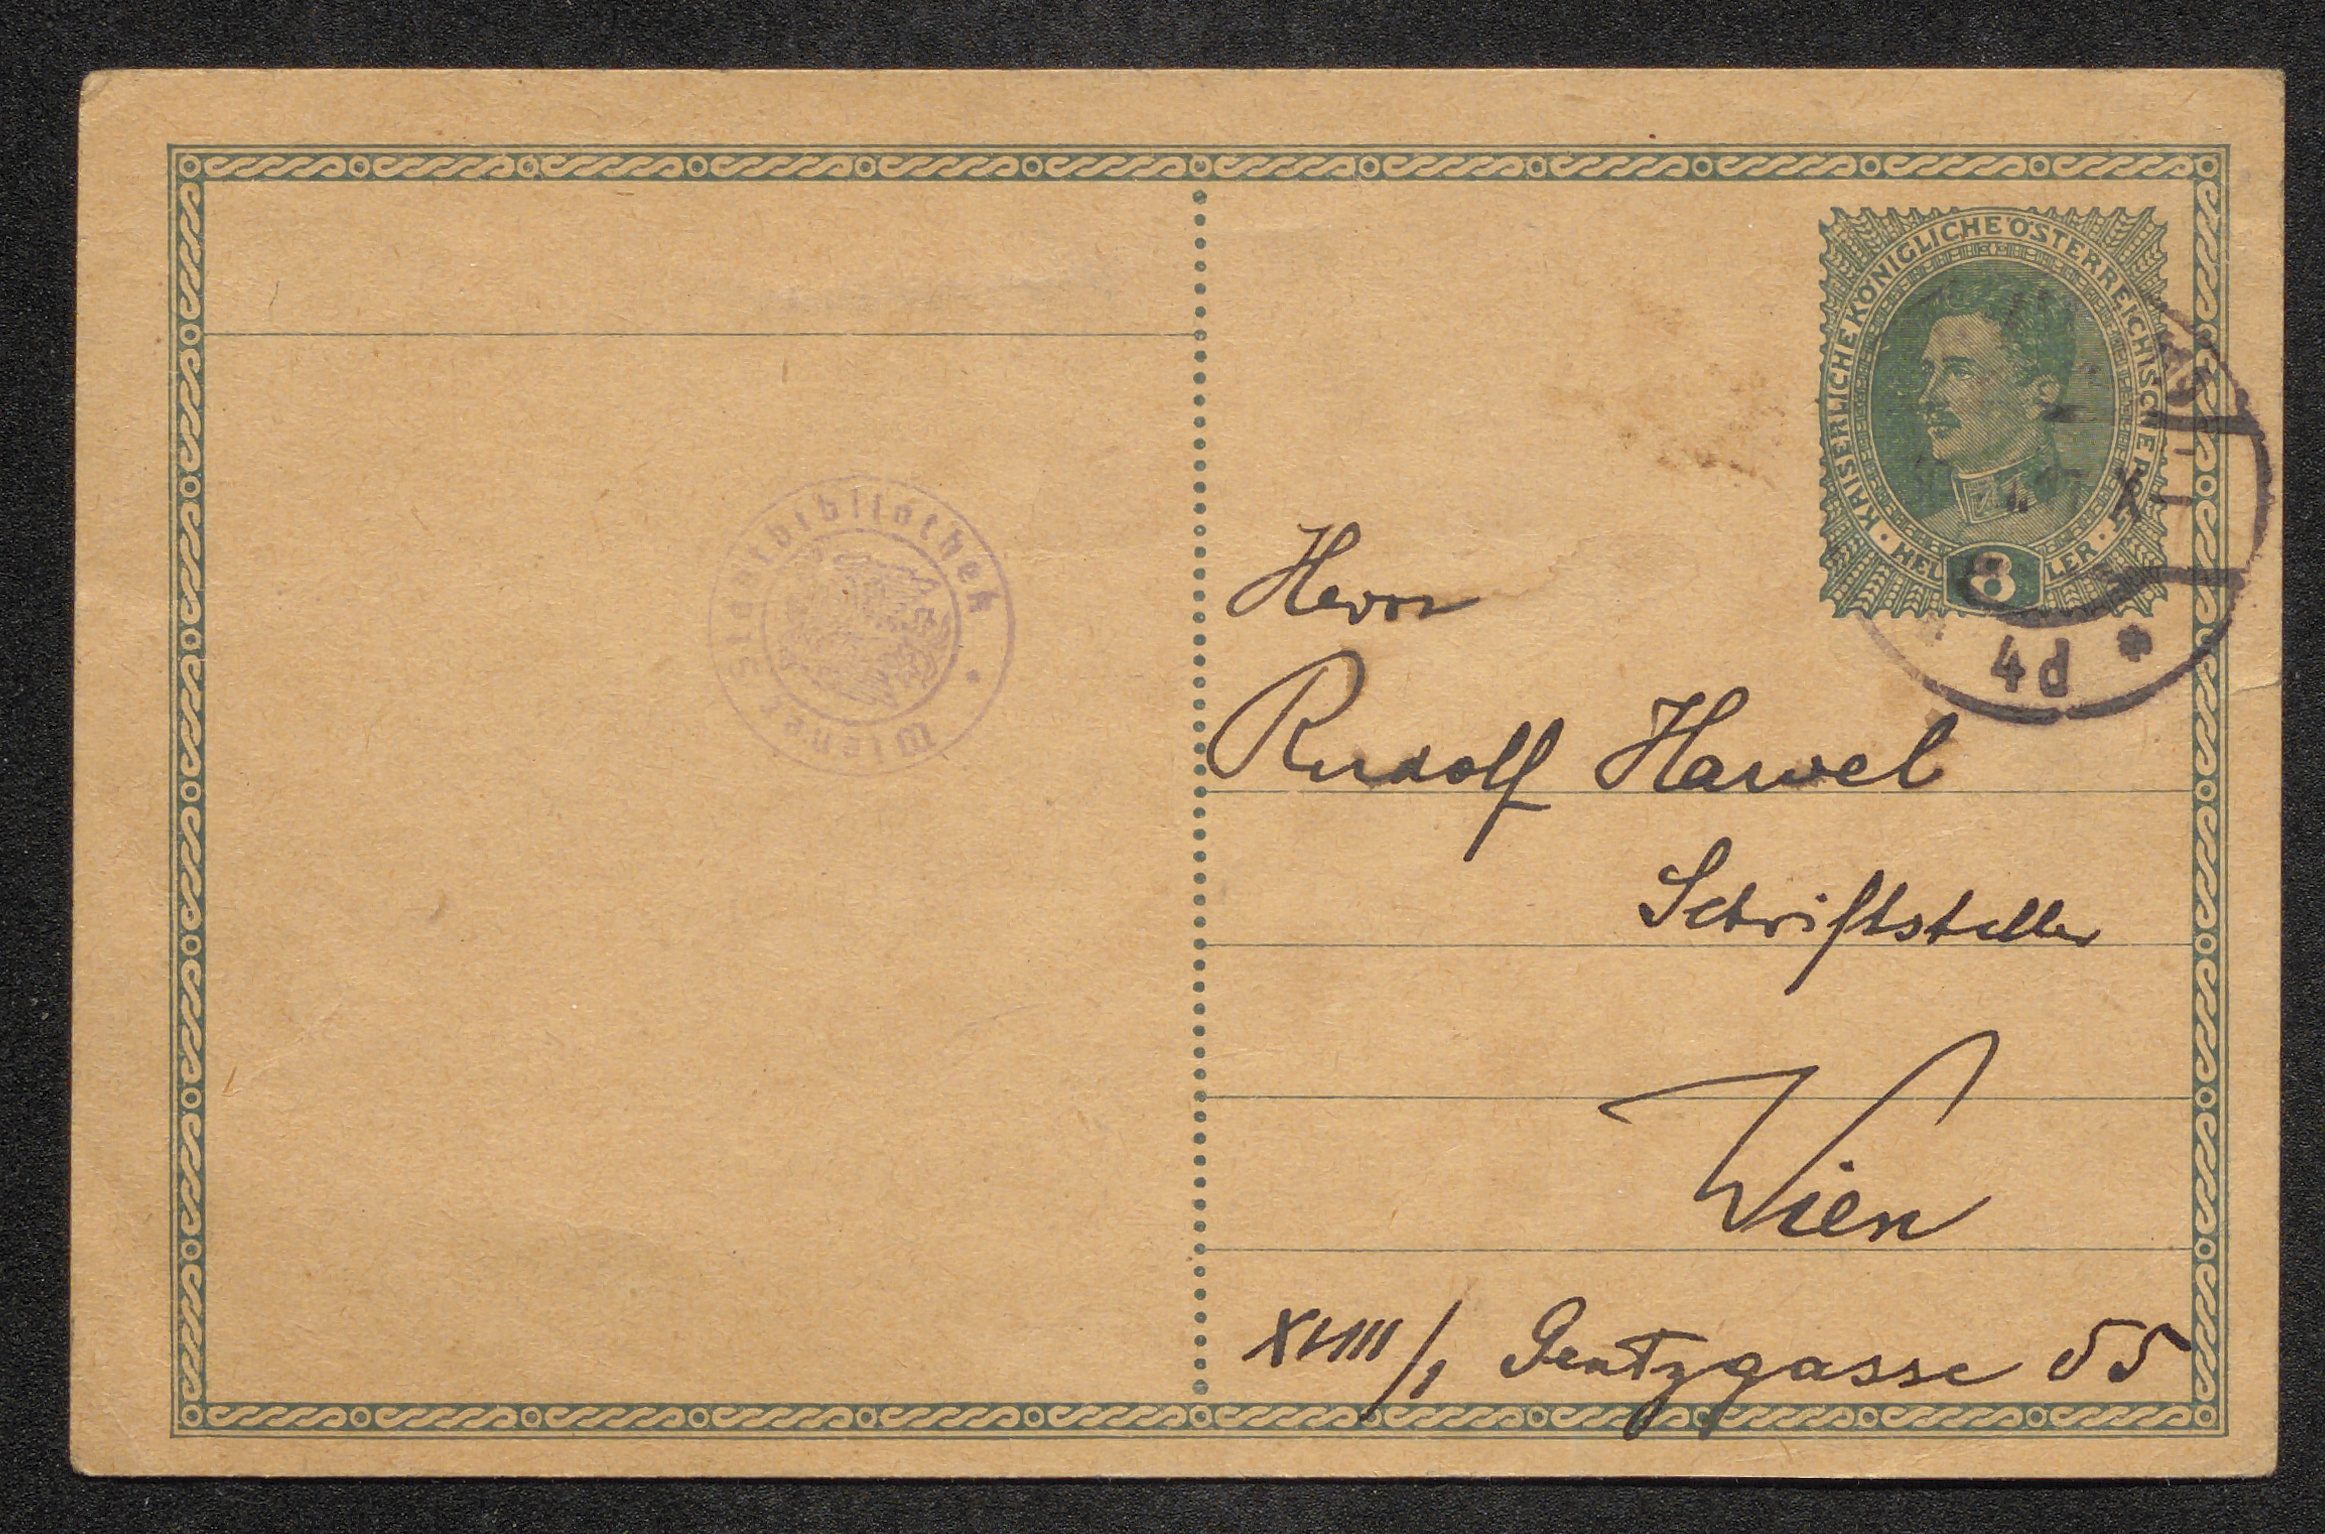 KAISERLICHE KÖNIGLICHE ÖSTERREICHISCHE
HELLER
8
4d
Wiener Stadtbibliothek
Herrn
Rudolf Hawel
Schriftsteller
Wien
XVIII/1 Gentzgasse 55